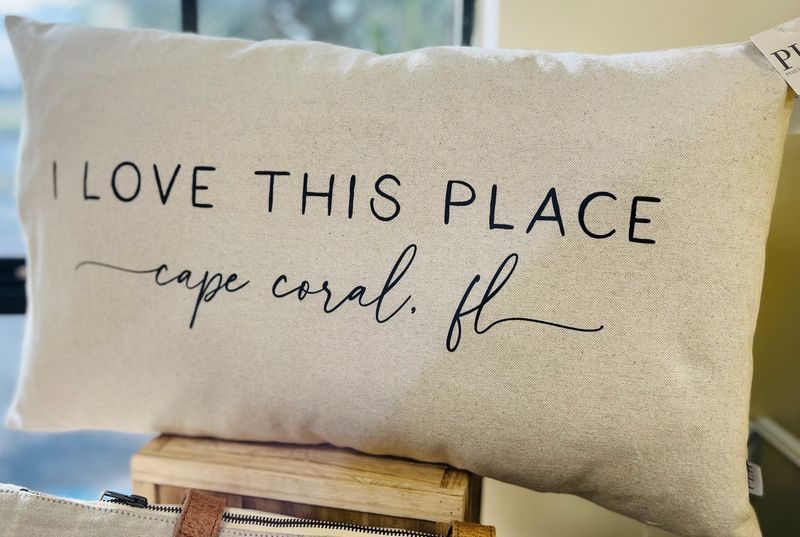 I LOVE THIS PLACE
cape coral, fl